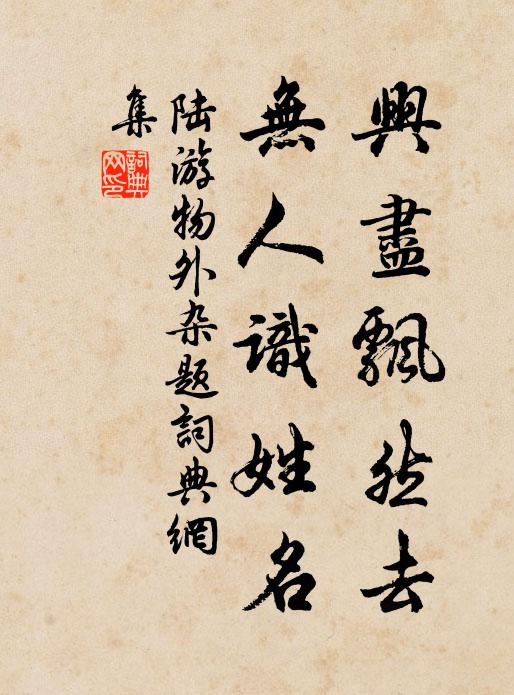 興盡飄然去
無人識姓名
陆游物外杂题詞典網
集
詞典
网印